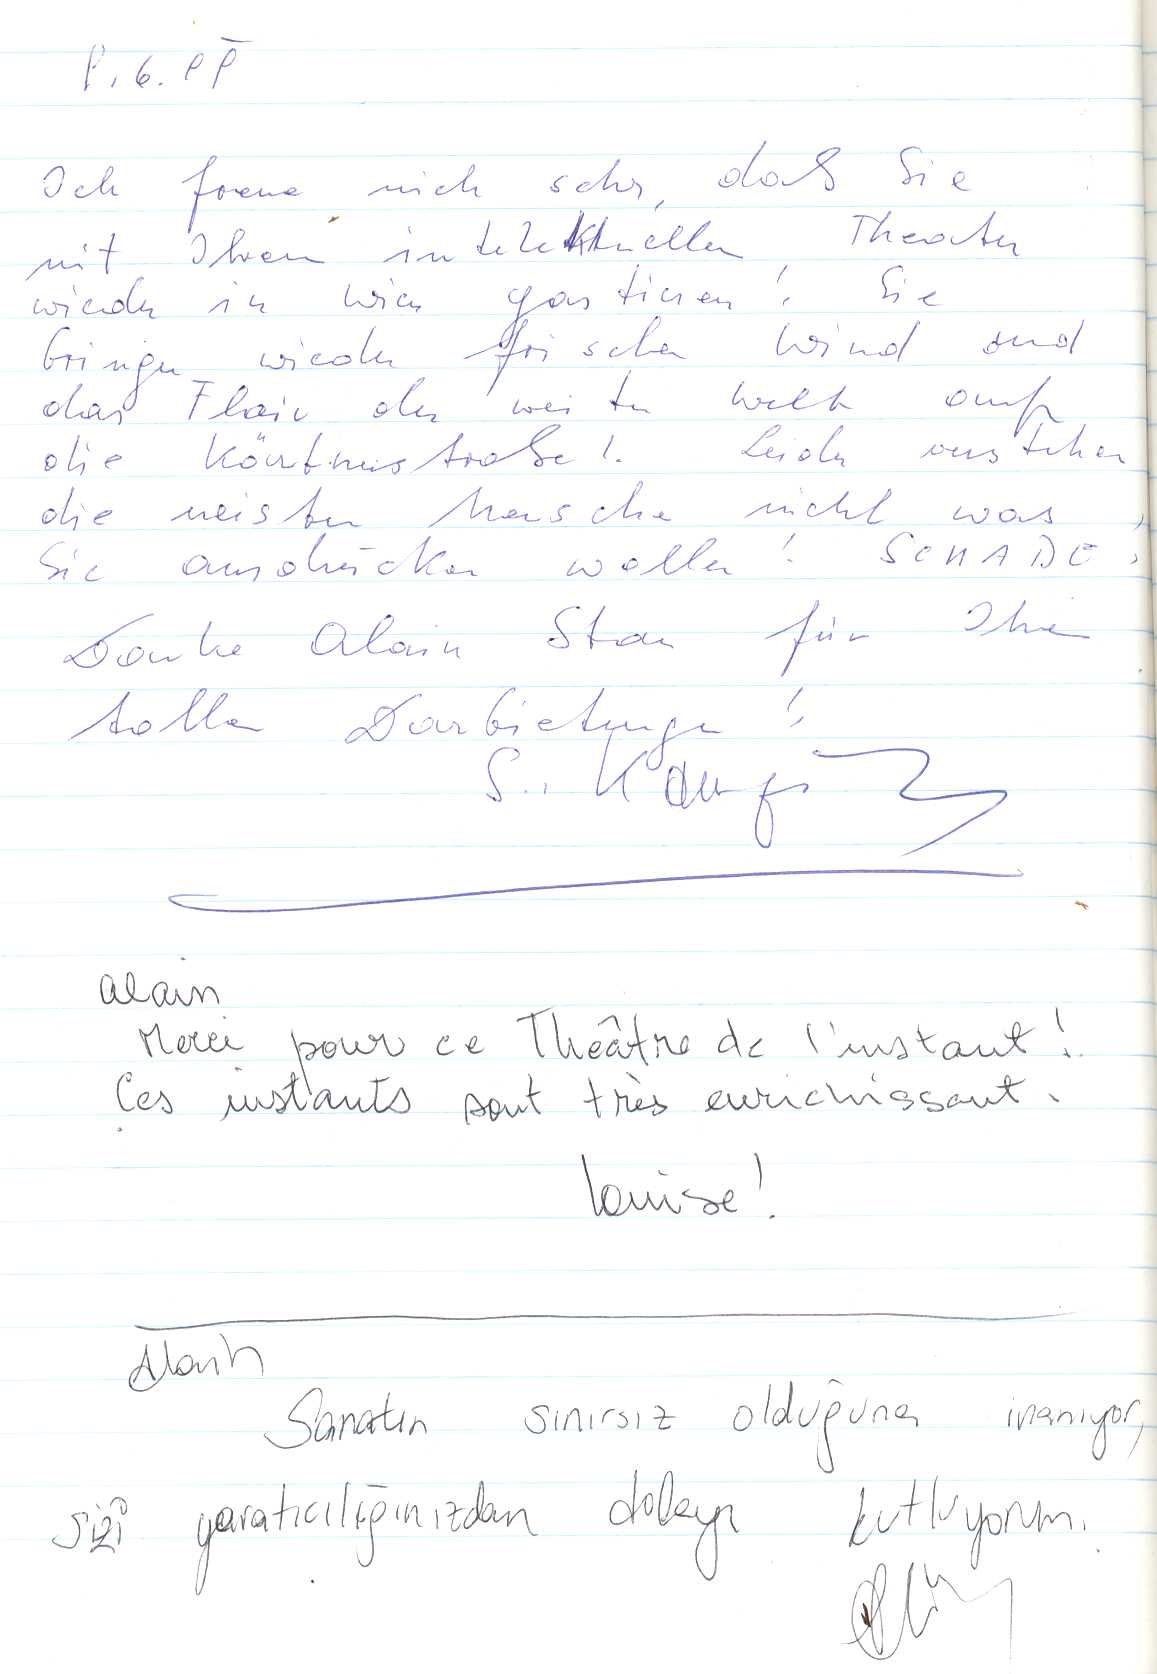 Ich freue mich sehr, daß Sie
mit Ihrem intelektuellen Theater
wieder in Wien gastieren! Sie
bringen wieder frischen Wind und
das Flair der weiten Welt auf
die Kärtnerstraße! Leider verstehen
die meisten Menschen nicht was
Sie ausdrücken wollen! SCHADE,
Danke Alain Stan für Ihre
tollen Darbietungen!
S.
alain
Merci pour ce Théâtre de l'instant!
Ces instants sont très enrichissant.
Louise!
Alain
Sanatın sınırsız olduğuna inanıyor,
sizi yaratıcılığınızdan dolayı kutluyorum.